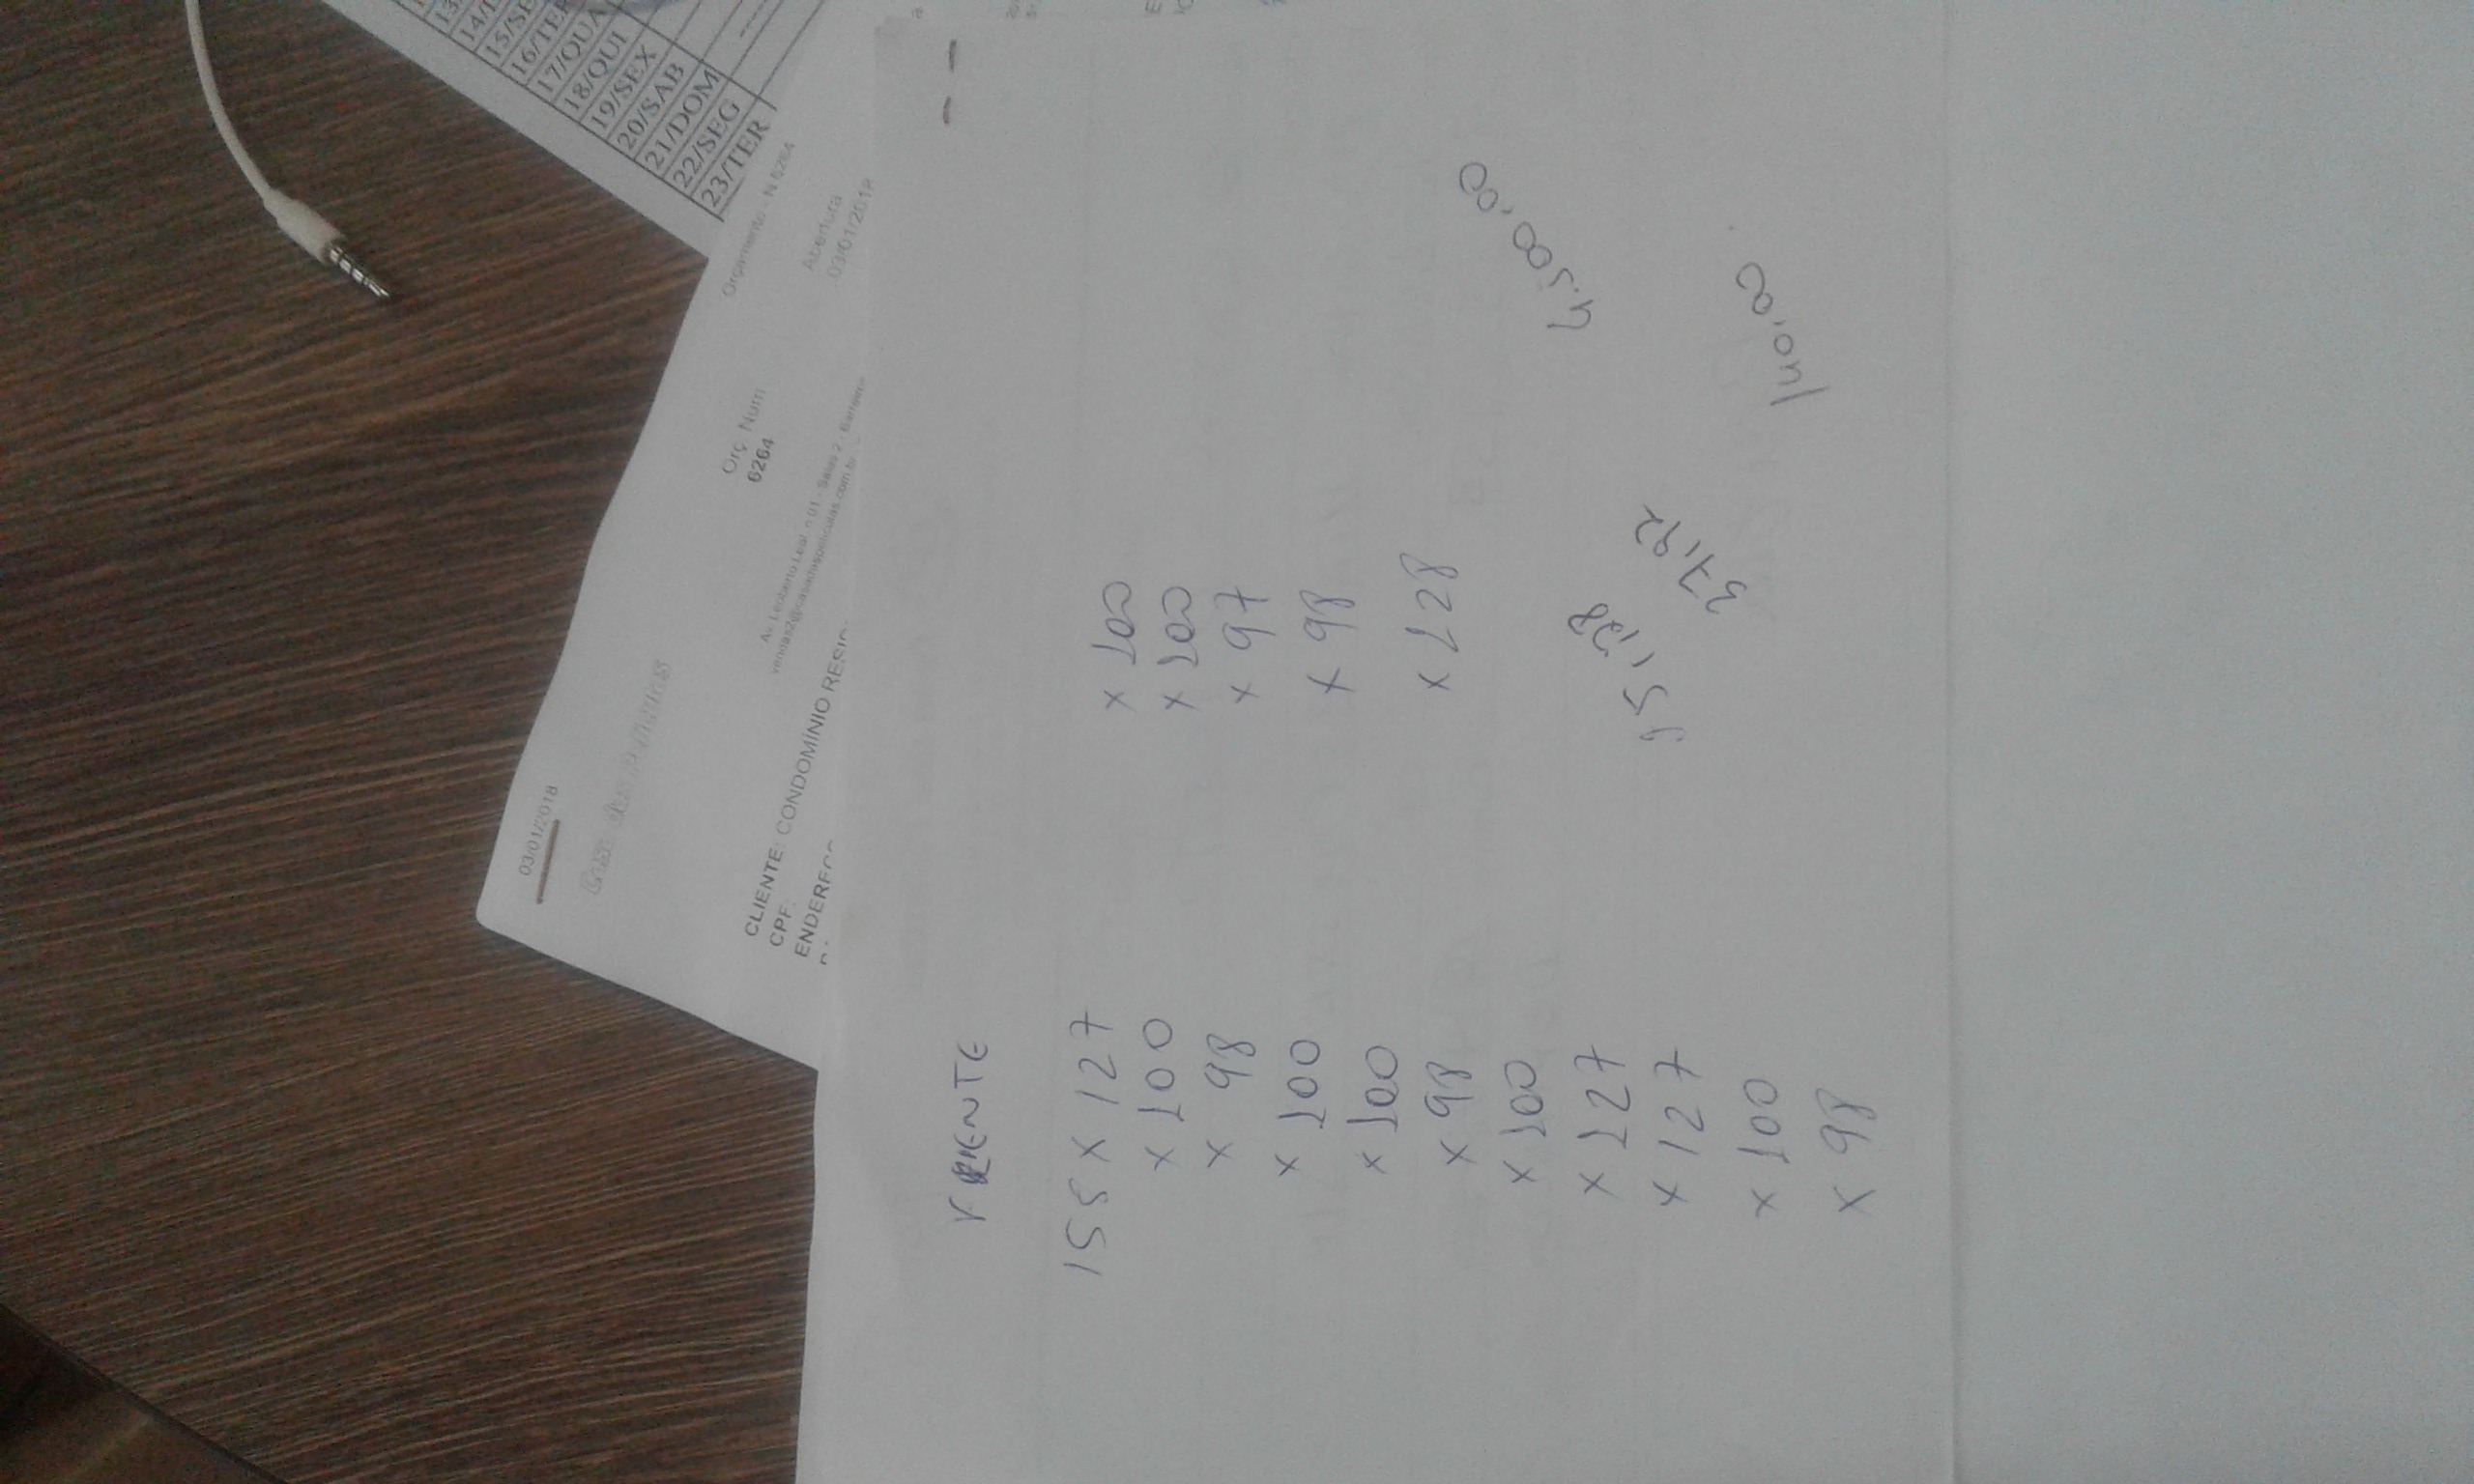 14/
15/SE
16/TER
17/QUA
18/QUI
19/SEX
20/SAB
21/DOM
22/SEG
23/TER
Orçamento - N 6264
Abertura
03/01/2018
Orç Num
6264
03/01/2018
Av. Leoberto Leal, n 01 - Salas 2 - Barreiro
CLIENTE: CONDOMÍNIO RESID
CPF:
ENDEREÇO
FRENTE
155 x 127
x 100
x 98
x 100
x 100
x 98
x 100
x 127
x 127
x 100
x 98
x 100
x 100
x 97
x 98
x 128
15,128
37,92
4.500,00
140,00